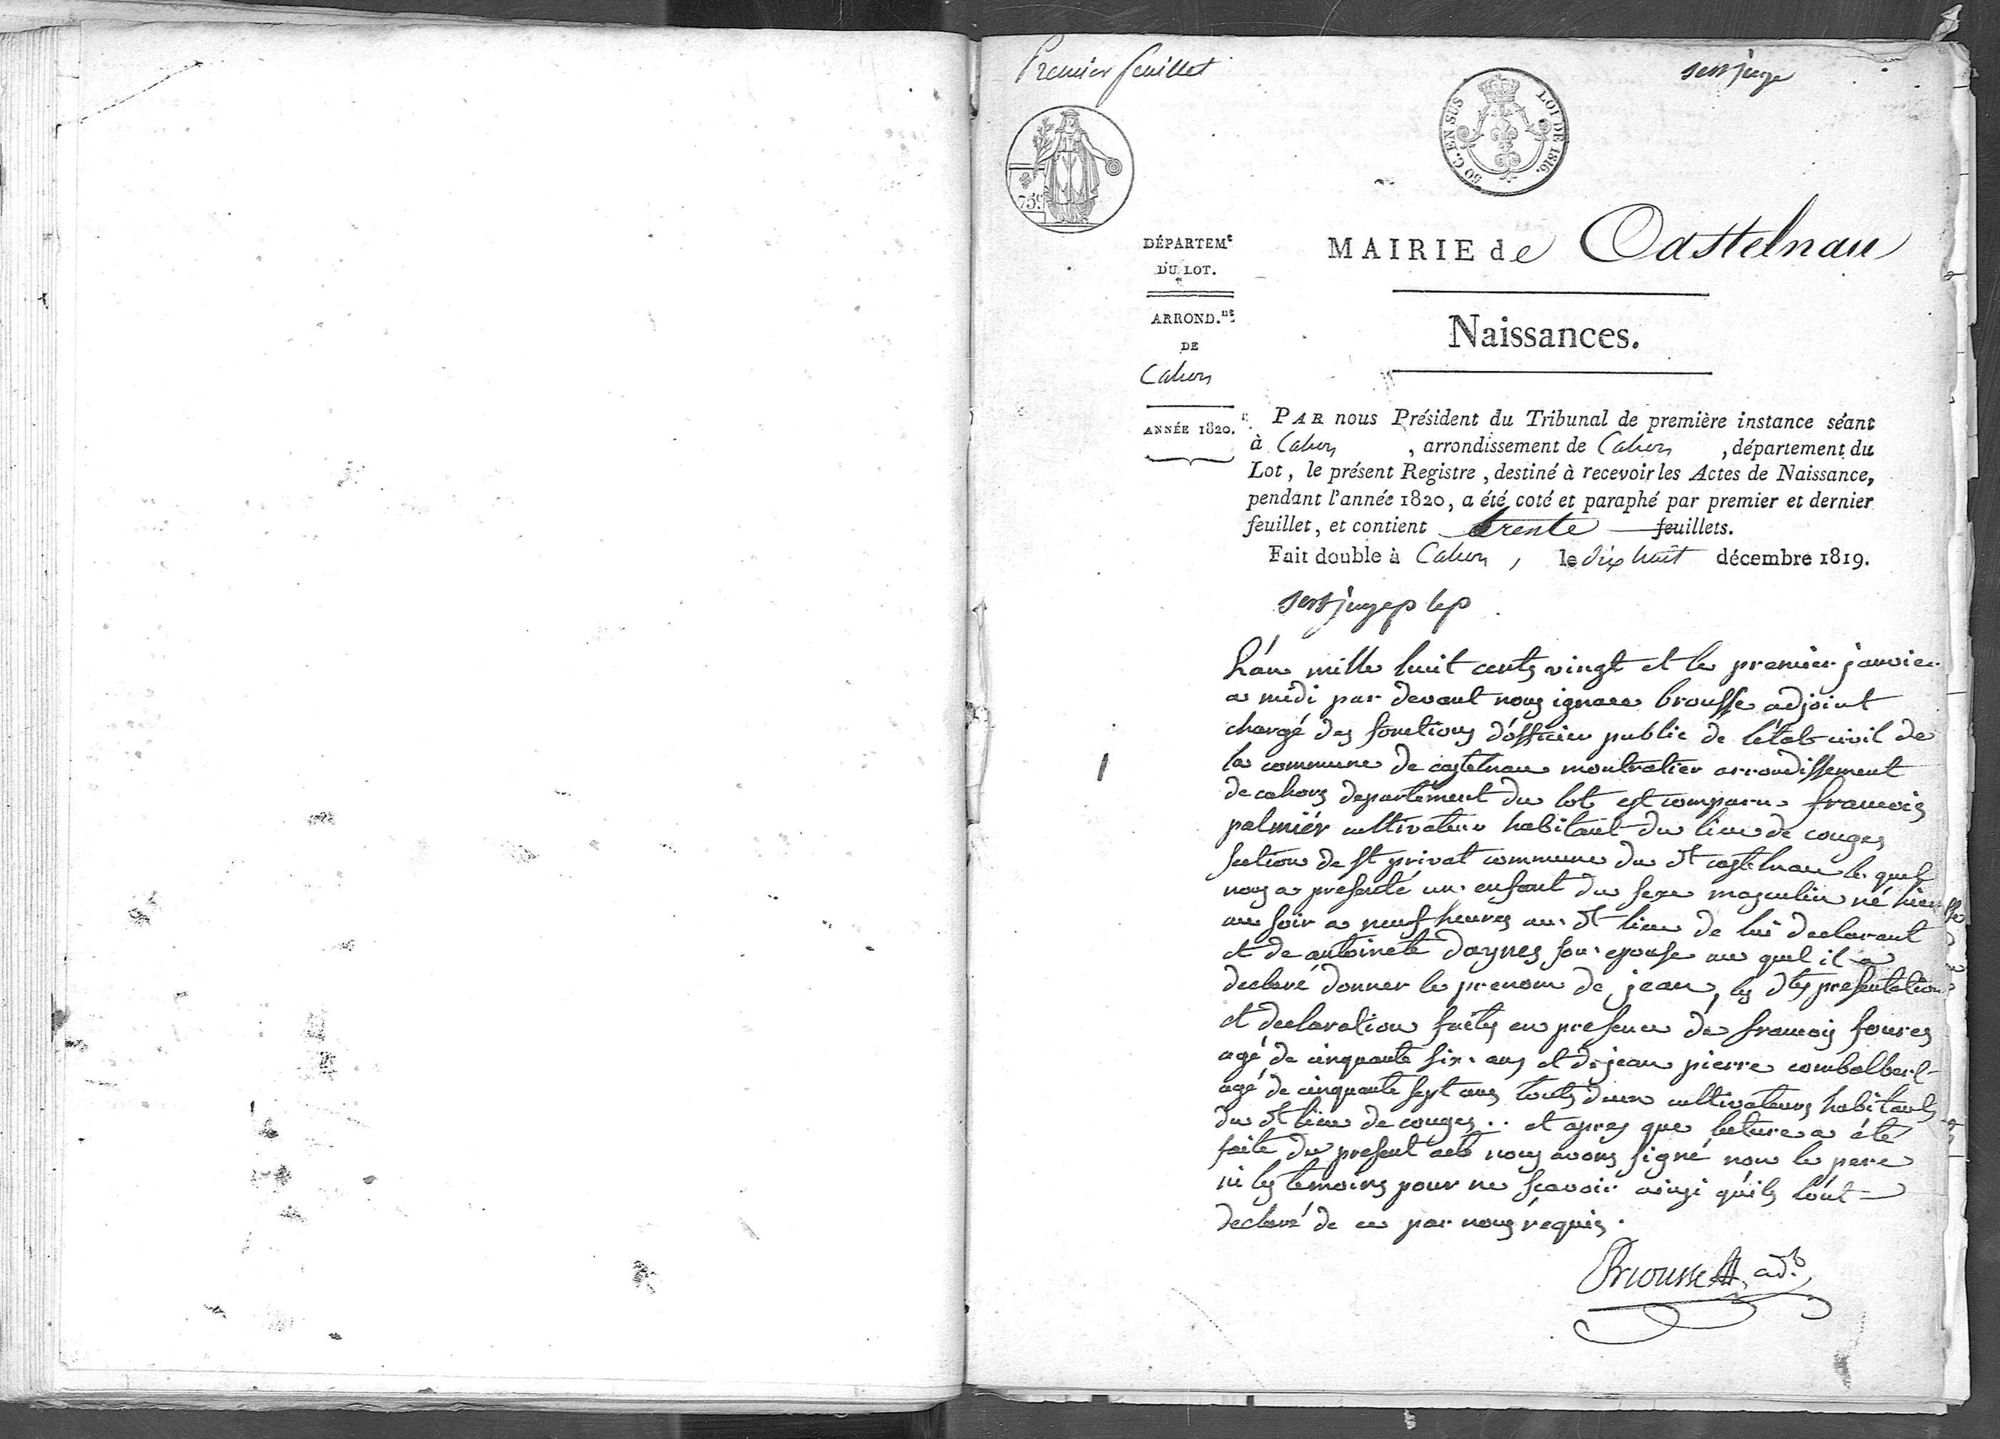 Premier feuillet
75 c.
50 C. EN SUS LOI DE 1816.
DÉPARTEM.t
DU LOT.
ARROND.nt
DE
Cahors
ANNÉE 1820.
MAIRIE de Castelnau
Naissances.
PAR nous Président du Tribunal de première instance séant
à Cahors, arrondissement de Cahors, département du
Lot, le présent Registre, destiné à recevoir les Actes de Naissance,
pendant l'année 1820, a été coté et paraphé par premier et dernier
feuillet, et contient trente feuillets.
Fait double à Cahors, le dix huit décembre 1819.
1
L'an mille huit cents vingt et le premier janvier
a midi par devant nous ignace brousse adjoint
chargé des fonctions d'officier public de l'état civil de
la commune de castelnau montratier arrondissement
de cahors departement du lot est comparu francois
palmiér cultivateur habitant du lieu de couges
section de st privat commune du dt castelnau le quel
nous a presenté un enfant du sexe masculin né hier
au soir a neuf heures au dt lieu de lui declarant
et de antoinete daynes son epouse au quel il a
declaré donner le prenom de jean, les dtes presentation
et declaration faites en presence de francois foures
agé de cinquante six ans et de jean pierre combalbert
agé de cinquante sept ans touts deux cultivateurs habitants
du dt lieu de couges .. et apres que lecture a été
faite du present acte nous avons signé non le pere
ni les temoins pour ne scavoir ainsi qu'ils l'ont
declaré de ce par nous réquis.
Brousse adt.